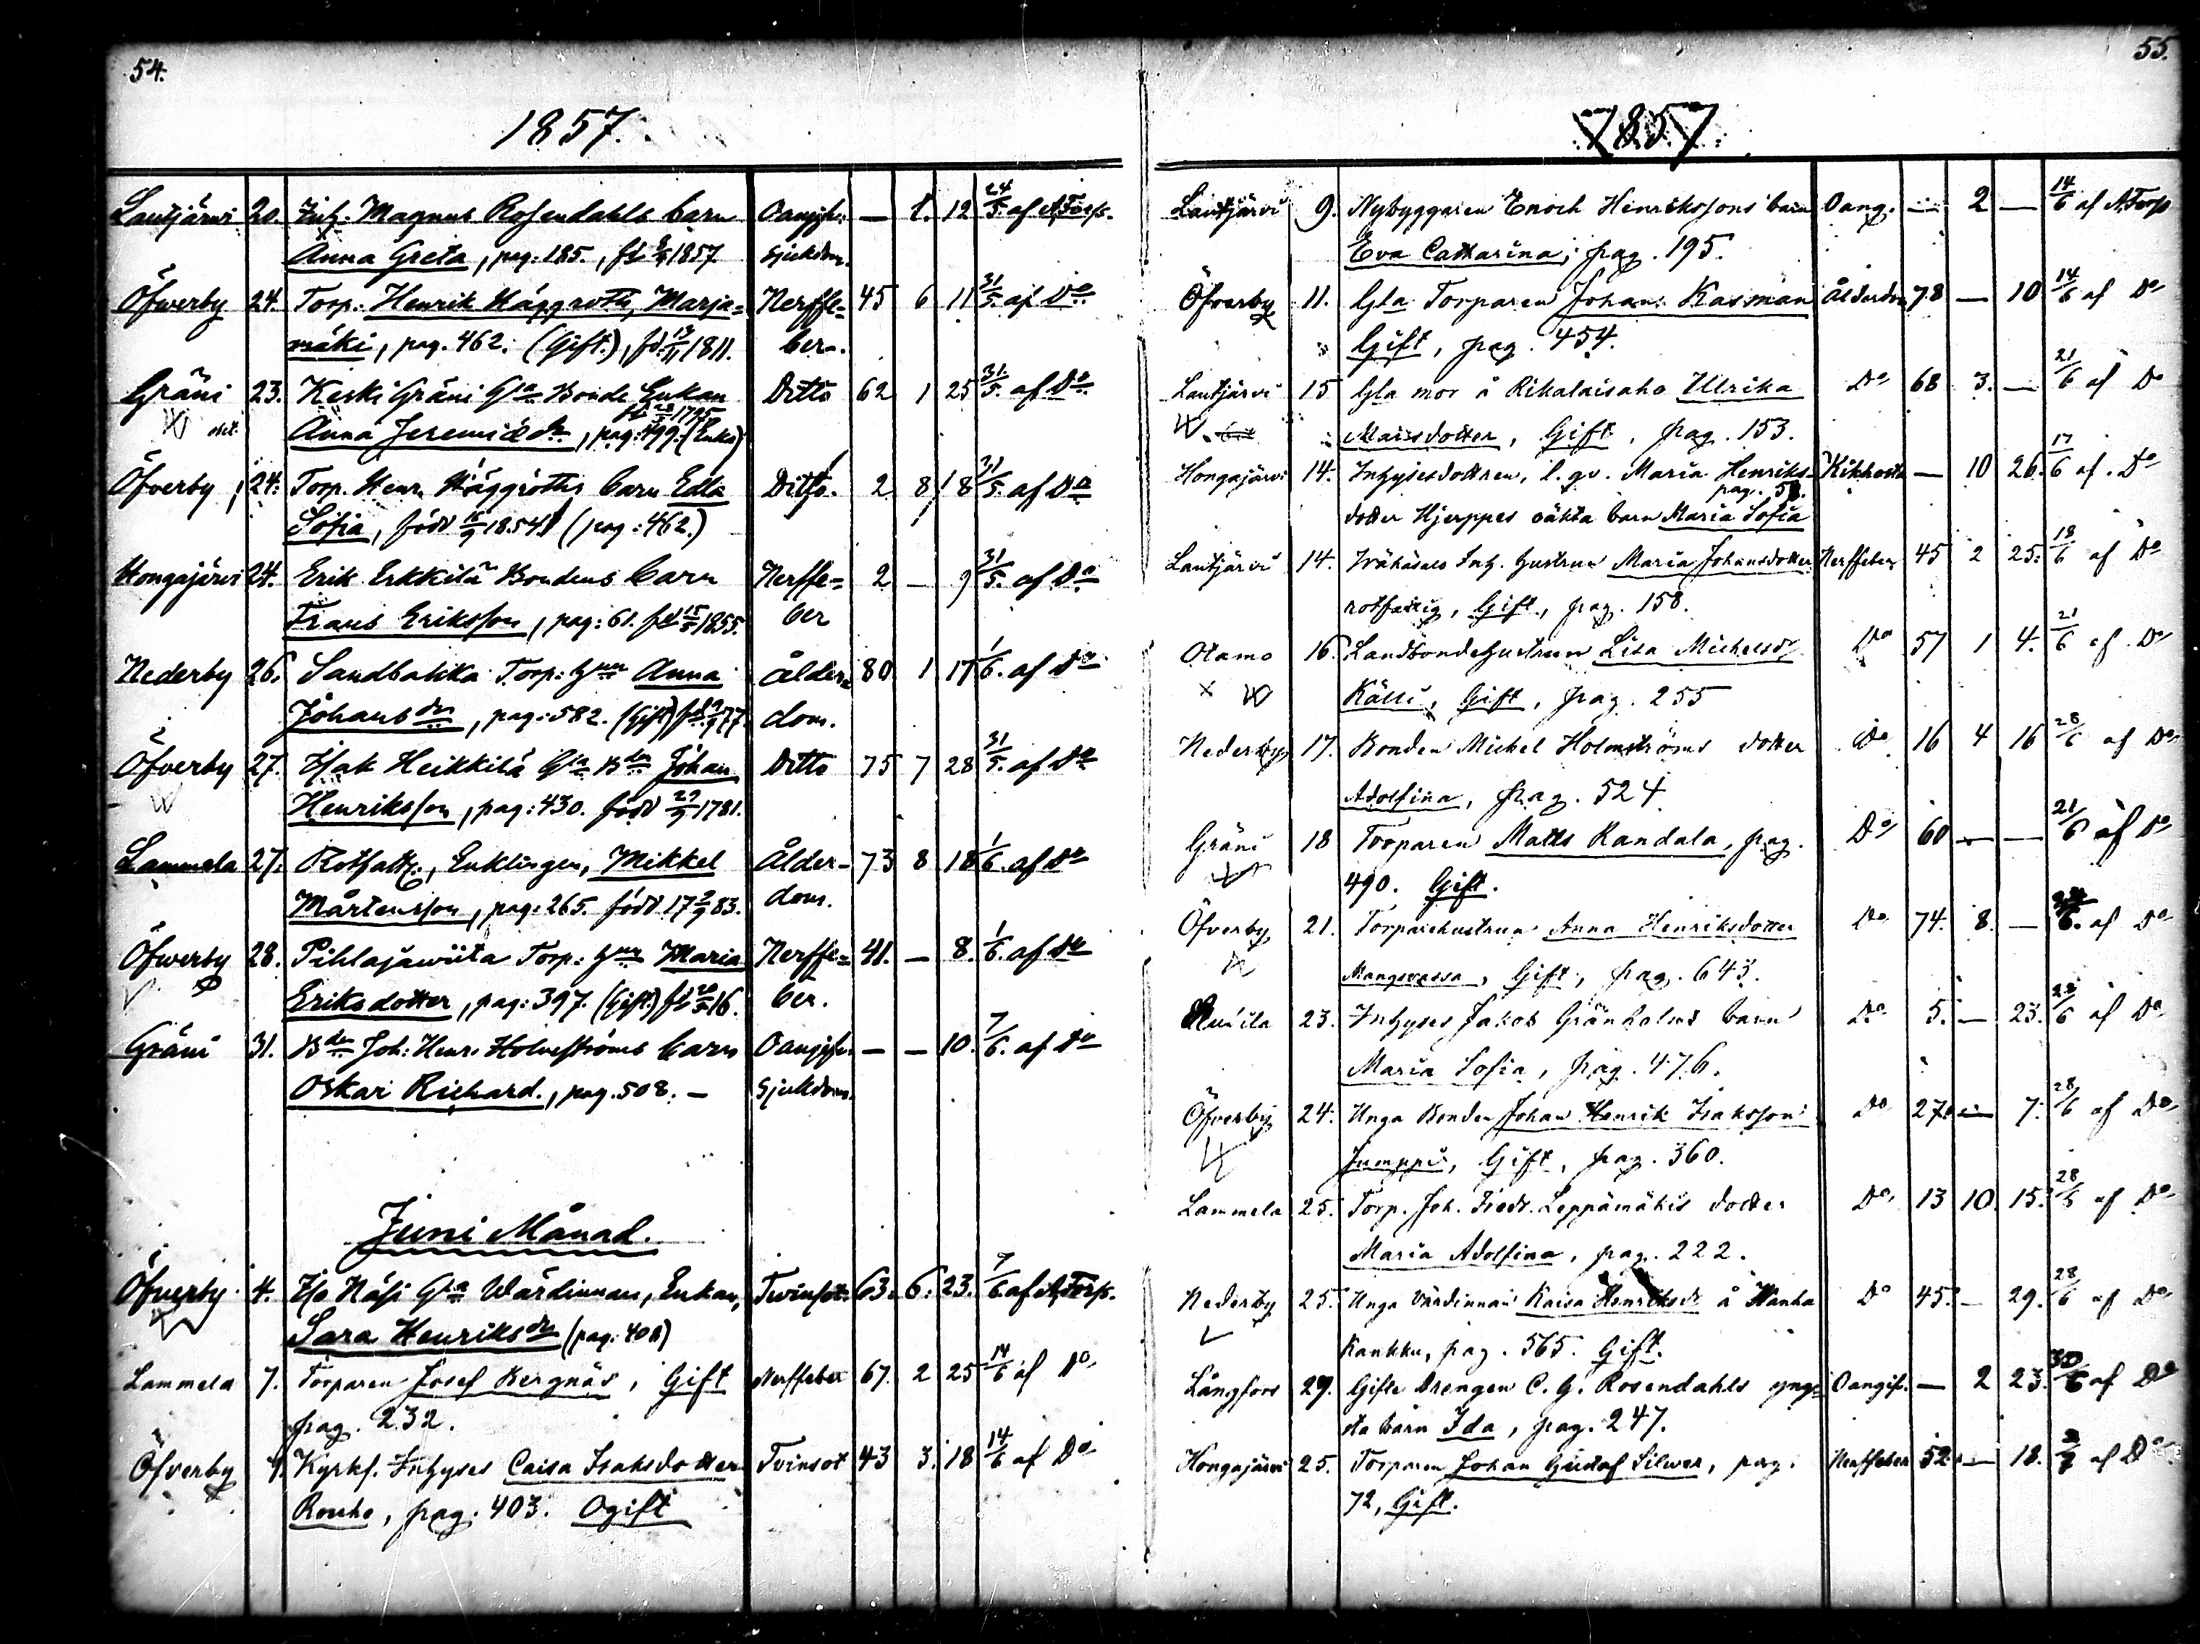 54.
1857.
Lautjärvi 20. Inh. Magnus Rosendahls barn Oangifv: — 1. 12 24/5. af A.Torp.
Anna Greta, pag: 185., 1857 sjukdom.
Öfverby 24. Torp. Henrik Häggroth, Marja= Nerffe= 45 6 11 31/5. af Do
mäki, pag. 462. (Gift.), fd. 13/11 1811. ber.
Gräni 23. Keski Gräni Gla Bonde Enkan Ditto 62 1 25 31/5. af Do
Anna Jeremiædr, pag: 499. (Enka) 1795
Öfverby 24. Torp. Henr. Häggroths barn Edla Ditto. 2 8 8 31/5. af Do
Sofia, född 16/9 1854 (pag: 462.)
Hongajärvi 24. Erik Erkkilä Bondens barn Nerffe= 2 — 9 31/5. af Do
Frans Eriksson, pag: 61. fd 15/5 1855. ber
Nederby 26. Sandbakka Torp: Hun Anna Ålder= 80 1 17 1/6. af Do
Johansdr, pag: 582. (Gift) dom.
Öfverby 27. Isak Heikkilä Gla Bden Johan Ditto 75 7 28 31/5. af Do
Henriksson, pag: 430. född 29/9 1781.
Lammela 27. Rotfatt., Enklingen, Mikkel Ålder- 73 8 18 1/6. af Do
Mårtensson, pag: 265. född 17 2/9 83. dom.
Öfverby 28. Pihlajawiita Torp: Hun Maria Nerffe= 41. — 8. 1/6. af Do
Eriksdotter, pag: 397. (Gift.) ber.
Gräni 31. Bden Joh: Henr: Holmströms barn Oangifv. — — 10. 7/6. af Do
Oskar Richard., pag. 508. — sjukdom.
Juni Månad.
Öfverby 4. Iso Näsi Gla Wärdinnan, Enkan, Tvinsot. 63. 6. 23. 7/6 af A.Torp.
Sara Henriksdr (pag: 401)
Lammela 7. Torparen Josef Bergnäs, Gift Nerffeber 67. 2 25 14/6 af Do
pag. 232.
Öfverby 9. Kyrkf. Inhyses Caisa Isaksdotter Tvinsot 43 3. 18 14/6 af Do
Rouho, pag. 403. Ogift
55.
1857
Lautjärvi 9. Nybyggaren Enoch Henrikssons barn Oang. — 2 — 14/6 af A.Torp
Eva Catharina, pag. 195.
Öfverby 11. Gla Torparen Johan Kasman Ålderdom 78 — 10 14/6 af Do
Gift, pag. 454.
Lautjärvi 15 Gla mor å Rikalaisaho Ulrika Do 68 3. — 21/6 af Do
Matsdotter, Gift, pag. 153.
Hongajärvi 14. Inhysesdottren, l. qv. Maria Henriks- Kikhosta — 10 26. 17/6 af Do
dotter Hjerppes oäkta barn Maria Sofia
Lautjärvi 14. Inh. hustrun Maria Johansdotter Nerffeber 45 2 25. 18/6 af Do
rotfattig, Gift, pag. 158.
Otamo 16. Landbondehustrun Lisa Michelsdr Do 57 1 4. 21/6 af Do
Källi, Gift, pag. 255
Nederby 17. Bonden Michel Holmströms dotter Do 16 4 16 28/6 af Do
Adolfina, pag. 524
Gräni 18 Torparen Matts Randala, pag. Do 60 — — 21/6 af Do
490. Gift.
Öfverby 21. Torparehustrun Anna Henriksdotter Do 74. 8. — af Do
Mangsvassa, Gift, pag. 643.
23. Inhyses Jakob Grönholms barn Do 5. — 23. 28/6 af Do
Maria Sofia, pag. 476.
Öfverby 24. Unga Bonden Johan Henrik Isaksson Do 27. — 7. 28/6 af Do
Jumppi, Gift, pag. 360.
Lammela 25. Torp. Joh. Fredr. Leppämäkis dotter Do 13 10. 15. 28/6 af Do
Maria Adolfina, pag. 222.
Nederby 25. Unga Värdinnan Kaisa Henriksdr å Wanha Do 45. — 29. 28/6 af Do
Kankku, pag. 565. Gift.
Långfors 29. Gifte Drengen C. G. Rosendahls yng- Oangifv. — 2 23. 30/6 af Do
sta barn Ida, pag. 247.
Hongajärvi 25. Torparen Johan Gustaf Silwer, pag. Nerffeber 52. — 18. af Do
72, Gift.